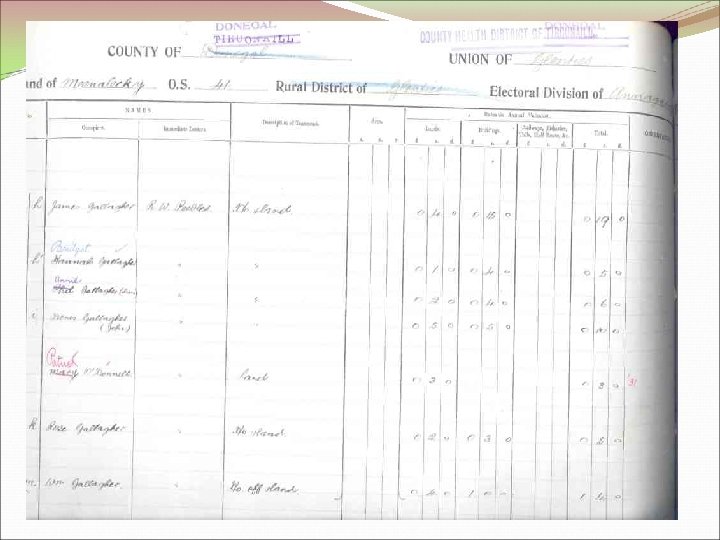 DONEGAL
TIRCONAILL
COUNTY HEALTH DISTRICT OF TIRCONAILL
DONEGAL
COUNTY OF Donegal
UNION OF Glenties
and of O.S. 41 Rural District of Glenties Electoral Division of
NAMES.
Description of Tenement.
Area.
Rateable Annual Valuation.
Occupiers. Immediate Lessors.
Lands. Buildings. Total.
h James Gallagher R. W. Ho. & land 0 4 0 0 15 0 0 19 0
Bridget ✓
Hannah Gallagher " " 0 1 0 0 4 0 0 5 0
Gallagher " " 0 2 0 0 4 0 0 6 0
i Gallagher " " 0 5 0 0 5 0 0 10 0
(John)
Patrick
Mary O'Donnell " Land 0 3 0 0 3 0 '31
k Rose Gallagher " Ho. & land 0 2 0 0 3 0 0 5 0
m. Wm Gallagher. " Ho. off & land 0 4 0 1 0 0 1 4 0